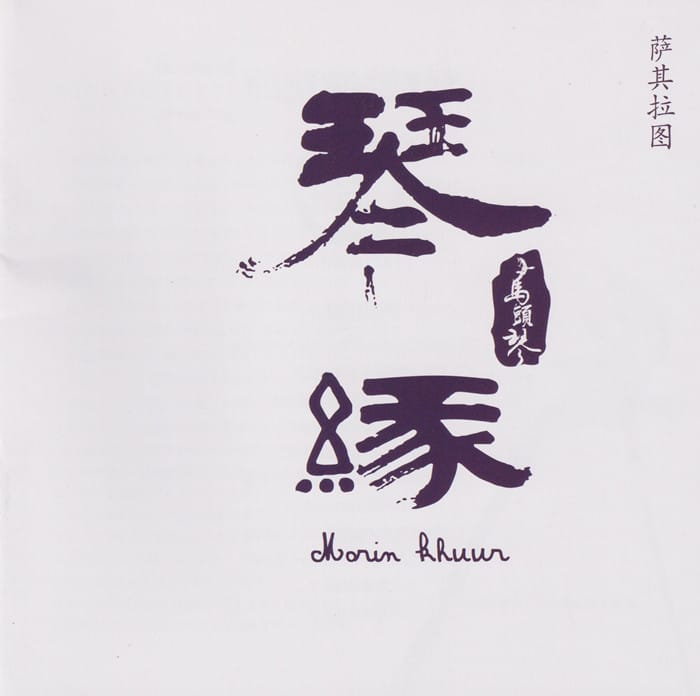 萨其拉图
琴
緣
馬頭琴
Morin khuur